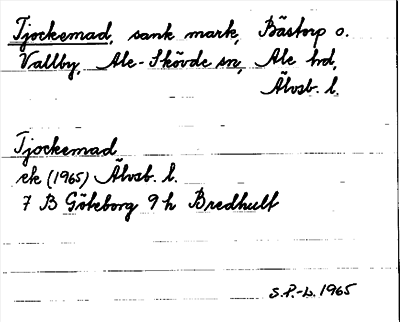 Tjockemad, sank mark, Bästorp o.
Vallby, Ale-Skövde sn, Ale hd,
Älvsb. l.
Tjockemad
ek (1965) Älvsb. l.
7 B Göteborg 9 h Bredhult
S.P.-L. 1965